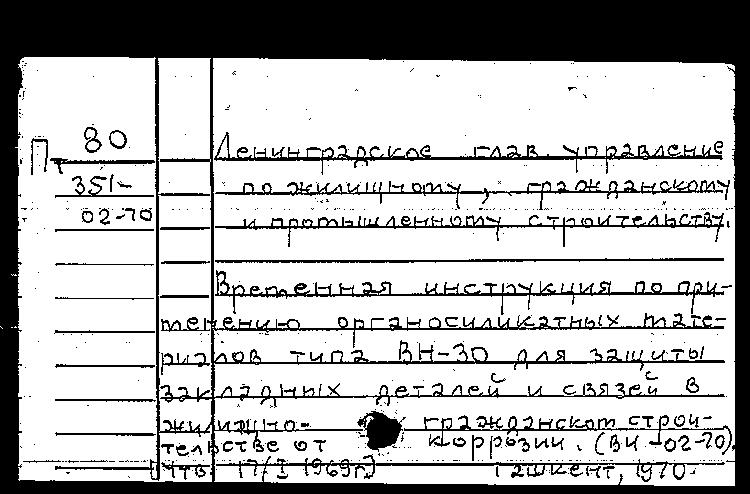 Пт 80
351-
02-70
Ленинградское глав. управление
по жилищному, гражданскому
и промышленному строительству.
Временная инструкция по при-
менению органосиликатных мате-
риалов типа ВН-30 для защиты
закладных деталей и связей в
жилищно- гражданском строи-
тельстве от коррозии. (ВИ-02-70).
[Утв. 17/I 1969г.] Ташкент, 1970.